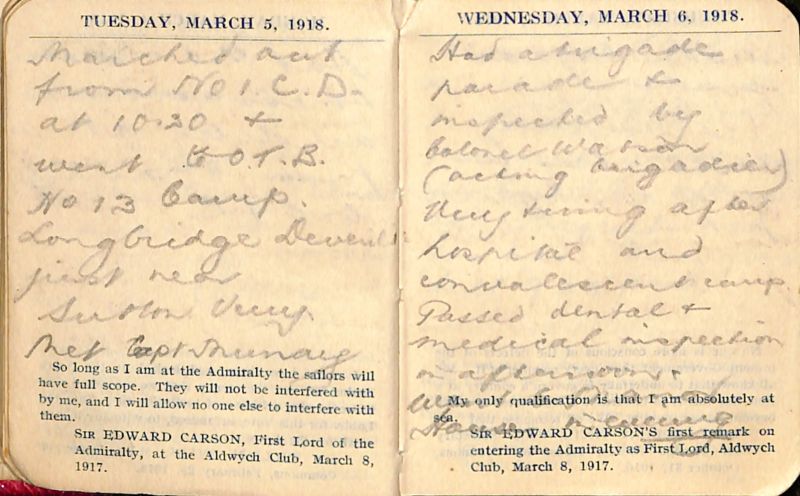 TUESDAY, MARCH 5, 1918.
Marched out
from No 1. C. D.
at 10.20 +
went to O.T.B.
No 13 Camp.
Longbridge Deverill
just near
Sutton Veny.
Met Capt
So long as I am at the Admiralty the sailors will
have full scope. They will not be interfered with
by me, and I will allow no one else to interfere with
them.
SIR EDWARD CARSON, First Lord of the
Admiralty, at the Aldwych Club, March 8,
1917.
WEDNESDAY, MARCH 6, 1918.
Had a brigade
parade +
inspected by
Colonel Watson
(acting brigadier)
Very tiring after
hospital and
convalescent camp.
Passed dental +
medical inspection
in afternoon.
My only qualification is that I am absolutely at
sea.
in evening
SIR EDWARD CARSON'S first remark on
entering the Admiralty as First Lord, Aldwych
Club, March 8, 1917.